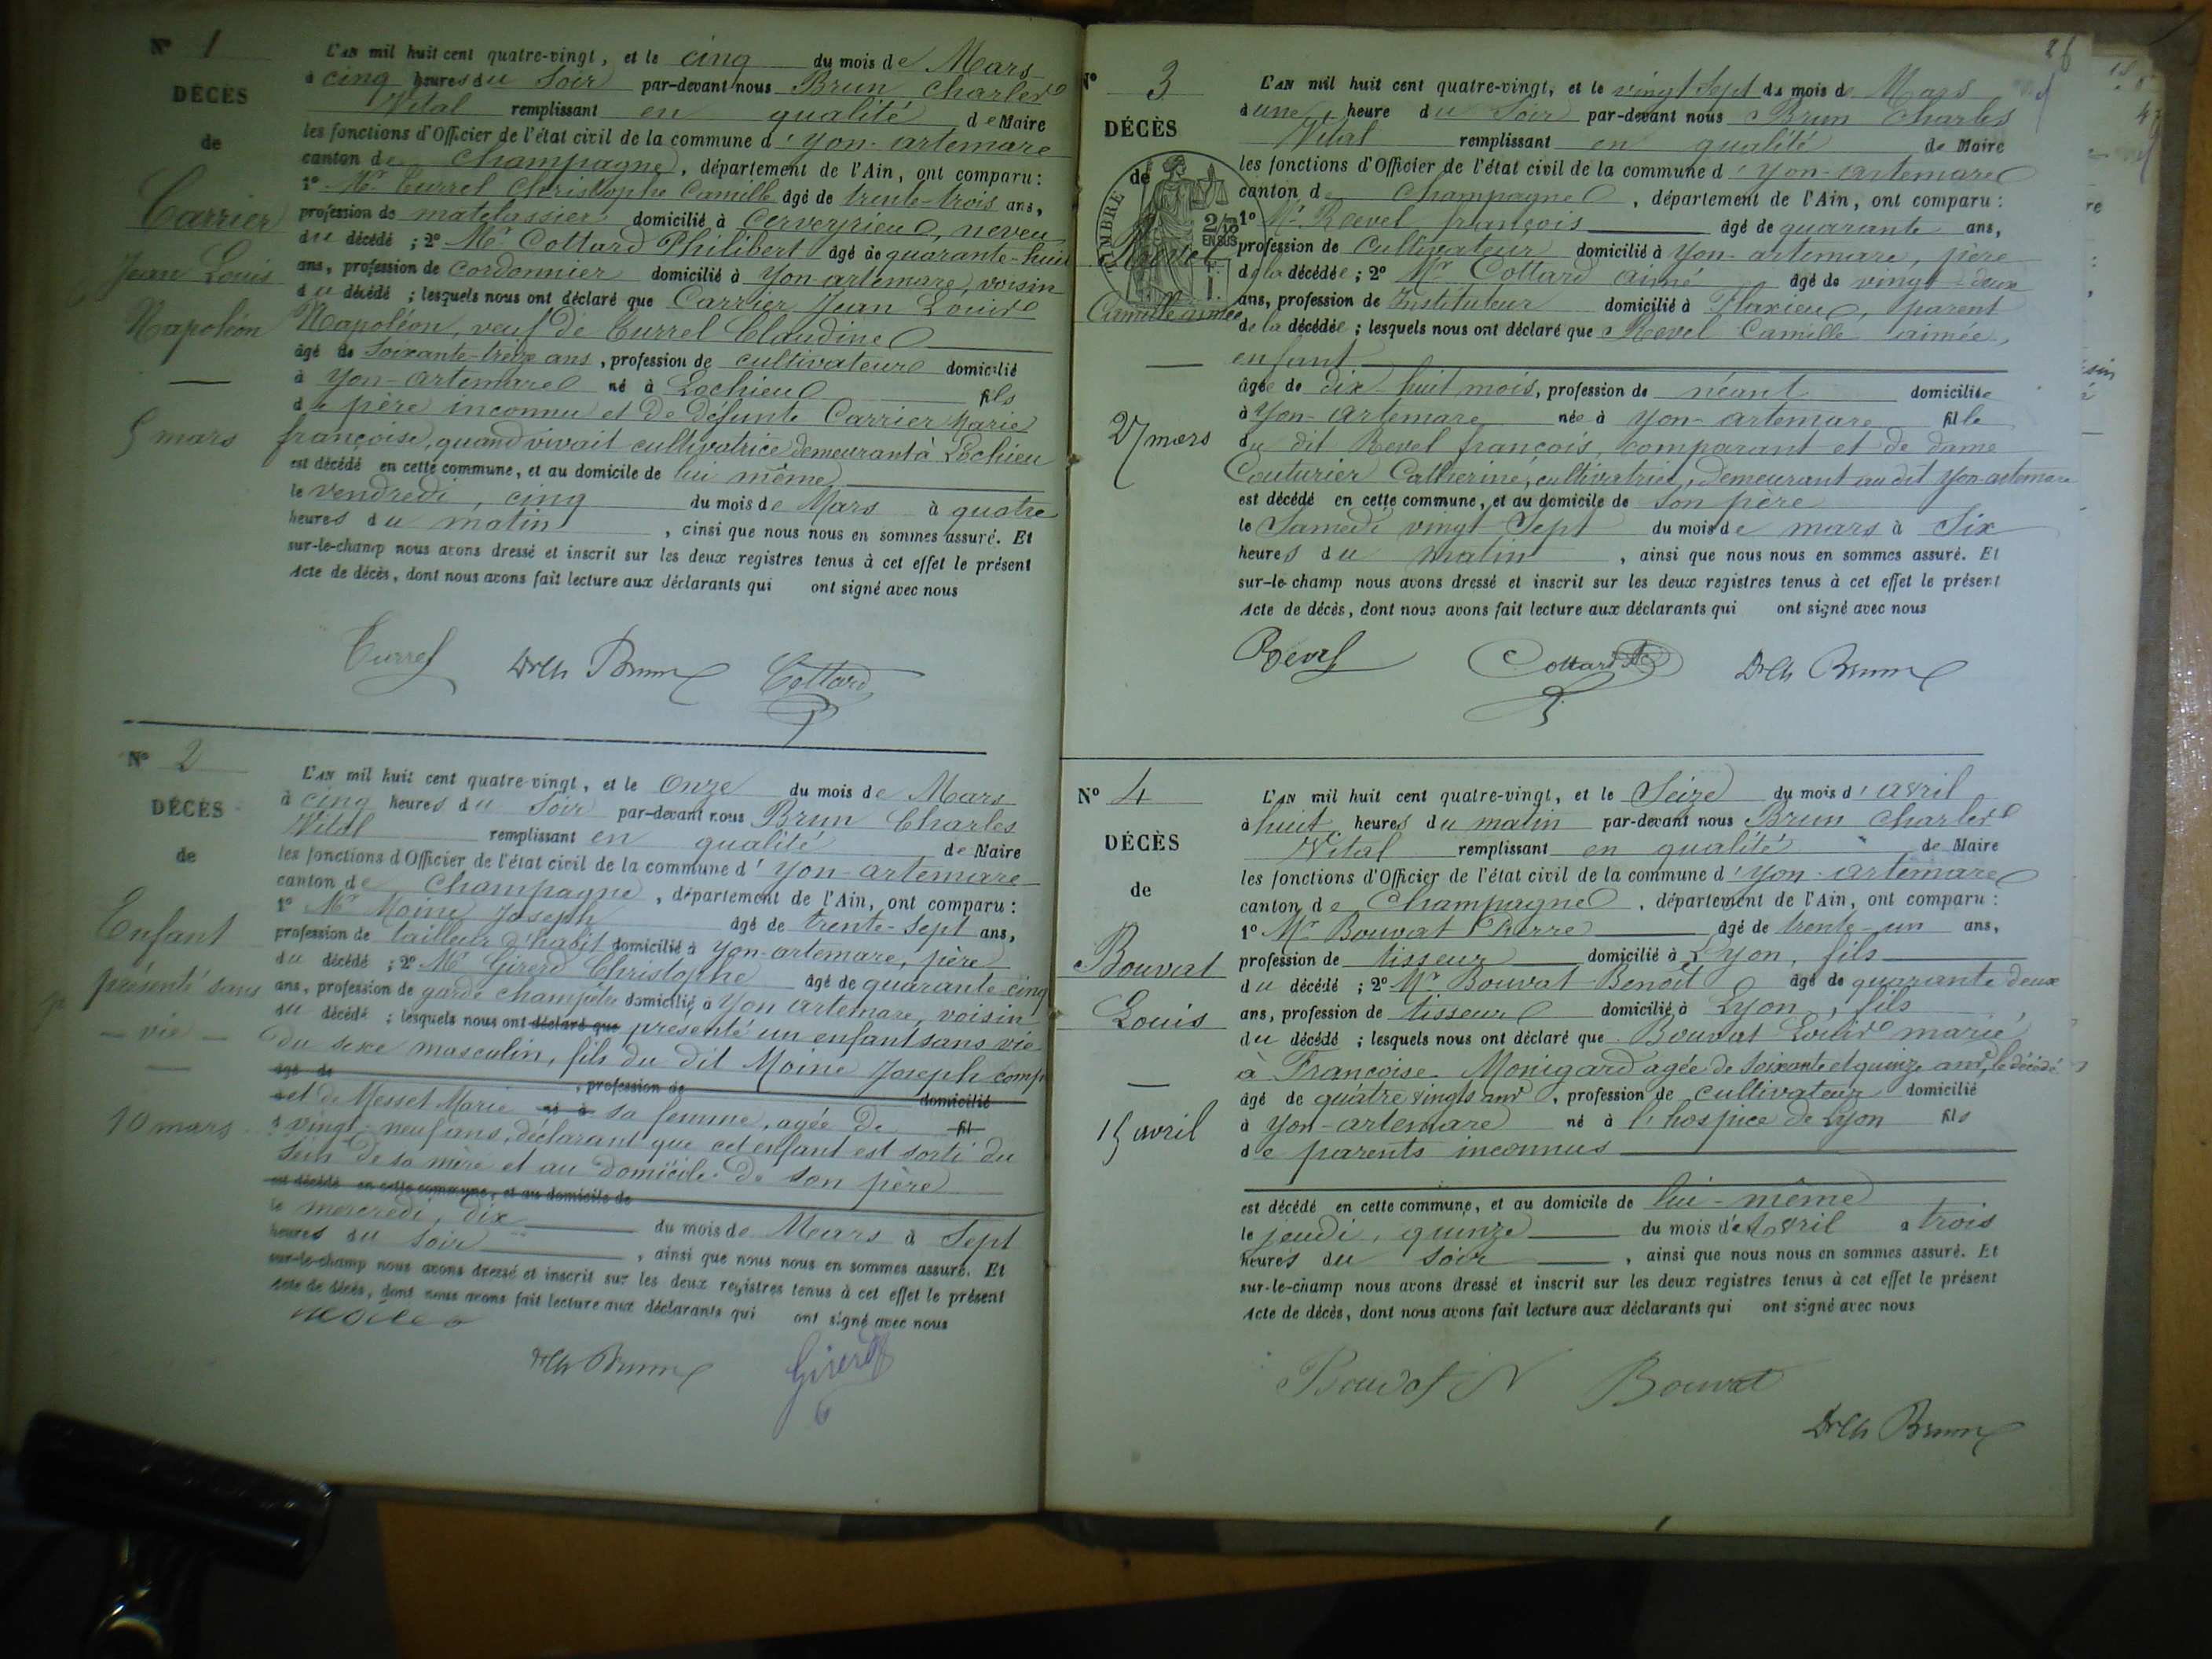 N° 1
DÉCÈS
de
Carrier
Jean Louis
Napoléon
5 mars
L'AN mil huit cent quatre-vingt, et le cinq du mois de Mars
à cinq heures du Soir par-devant nous Brun Charles
Vital remplissant en qualité de Maire
les fonctions d'Officier de l'état civil de la commune d'Yon-artemare
canton de Champagne, département de l'Ain, ont comparu :
1° Mr Currel Christophe Camille âgé de trente-trois ans,
profession de matelassier domicilié à Cerveyrieu, neveu
du décédé ; 2° Mr Cottard Philibert âgé de quarante-huit
ans, profession de Cordonnier domicilié à Yon-artemare, voisin
du décédé ; lesquels nous ont déclaré que Carrier Jean Louis
Napoléon, veuf de Currel Claudine
âgé de Soixante-treize ans, profession de cultivateur domicilié
à Yon-artemare né à Lochieu fils
de père inconnu et de défunte Carrier Marie
françoise, quand vivait cultivatrice demeurant à Lochieu
est décédé en cette commune, et au domicile de lui même
le vendredi, cinq du mois de Mars à quatre
heures du matin, ainsi que nous nous en sommes assuré. Et
sur-le-champ nous avons dressé et inscrit sur les deux registres tenus à cet effet le présent
Acte de décès, dont nous avons fait lecture aux déclarants qui ont signé avec nous
Currel Dr Ch Brun Cottard
N° 2
DÉCÈS
de
Enfant
présenté sans
- vie -
10 mars
L'AN mil huit cent quatre-vingt, et le Onze du mois de Mars
à cinq heures du Soir par-devant nous Brun Charles
Vital remplissant en qualité de Maire
les fonctions d'Officier de l'état civil de la commune d'Yon-artemare
canton de Champagne, département de l'Ain, ont comparu :
1° Mr Moine Joseph âgé de trente-sept ans,
profession de tailleur d'habit domicilié à Yon-artemare, père
du décédé ; 2° Mr Girerd Christophe âgé de quarante-cinq
ans, profession de garde champêtre domicilié à Yon artemare, voisin
du décédé ; lesquels nous ont déclaré que présenté un enfant sans vie
du sexe masculin, fils du dit Moine Joseph comp
âgé de , profession de domicilié
et de Messet Marie né à sa femme, agée de fil
vingt-neuf ans, déclarant que cet enfant est sorti du
Sein de sa mère et au domicile de son père
est décédé en cette commune, et au domicile de
le mercredi, dix du mois de Mars à Sept
heures du Soir, ainsi que nous nous en sommes assuré. Et
sur-le-champ nous avons dressé et inscrit sur les deux registres tenus à cet effet le présent
Acte de décès, dont nous avons fait lecture aux déclarants qui ont signé avec nous
Dr Ch Brun Girerd
26
N° 3
DÉCÈS
de
TIMBRE
2/10 EN SUS
Revel
Camille aimée
27 mars
L'AN mil huit cent quatre-vingt, et le vingt Sept du mois de Mars
à une heure du Soir par-devant nous Brun Charles
Vital remplissant en qualité de Maire
les fonctions d'Officier de l'état civil de la commune d'Yon-artemare
canton de Champagne, département de l'Ain, ont comparu :
1° Mr Revel françois âgé de quarante ans,
profession de Cultivateur domicilié à Yon-artemare, père
de la décédée ; 2° Mr Cottard aimé âgé de vingt-deux
ans, profession de Instituteur domicilié à Flaxieu, parent
de la décédée ; lesquels nous ont déclaré que Revel Camille aimée,
enfant
âgée de dix huit mois, profession de néant domiciliée
à Yon-artemare née à Yon-artemare fille
du dit Revel françois, comparant et de dame
Couturier Catherine, cultivatrice, demeurant au dit Yon-artemare
est décédé en cette commune, et au domicile de Son père
le Samedi vingt Sept du mois de mars à Six
heures du matin, ainsi que nous nous en sommes assuré. Et
sur-le-champ nous avons dressé et inscrit sur les deux registres tenus à cet effet le présent
Acte de décès, dont nous avons fait lecture aux déclarants qui ont signé avec nous
Revel Cottard Dr Ch Brun
N° 4
DÉCÈS
de
Bouvat
Louis
15 avril
L'AN mil huit cent quatre-vingt, et le Seize du mois d'avril
à huit heures du matin par-devant nous Brun Charles
Vital remplissant en qualité de Maire
les fonctions d'Officier de l'état civil de la commune d'Yon-artemare
canton de Champagne, département de l'Ain, ont comparu :
1° Mr Bouvat Pierre âgé de trente-un ans,
profession de tisseur domicilié à Lyon, fils
du décédé ; 2° Mr Bouvat Benoît âgé de quarante deux
ans, profession de tisseur domicilié à Lyon, fils
du décédé ; lesquels nous ont déclaré que Bouvat Louis marié
à Françoise Monigard agée de Soixante et quinze ans, le décédé
âgé de quatre vingts ans, profession de cultivateur domicilié
à Yon-artemare né à l'hospice de Lyon fils
de parents inconnus
est décédé en cette commune, et au domicile de lui-même
le jeudi, quinze du mois d'Avril à trois
heures du soir, ainsi que nous nous en sommes assuré. Et
sur-le-champ nous avons dressé et inscrit sur les deux registres tenus à cet effet le présent
Acte de décès, dont nous avons fait lecture aux déclarants qui ont signé avec nous
Bouvat Bouvat
Dr Ch Brun